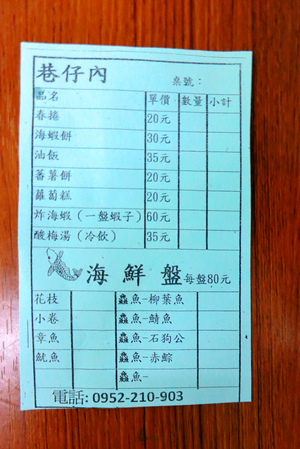 巷仔內 桌號：
品名 單價 數量 小計
春捲 20元
海蝦餅 30元
油飯 35元
蕃薯餅 20元
蘿蔔糕 20元
炸海蝦（一盤蝦子） 60元
酸梅湯（冷飲） 35元
海鮮盤 每盤80元
花枝 鱻魚-柳葉魚
小卷 鱻魚-鯖魚
章魚 鱻魚-石狗公
魷魚 鱻魚-赤鯮
鱻魚-
電話: 0952-210-903